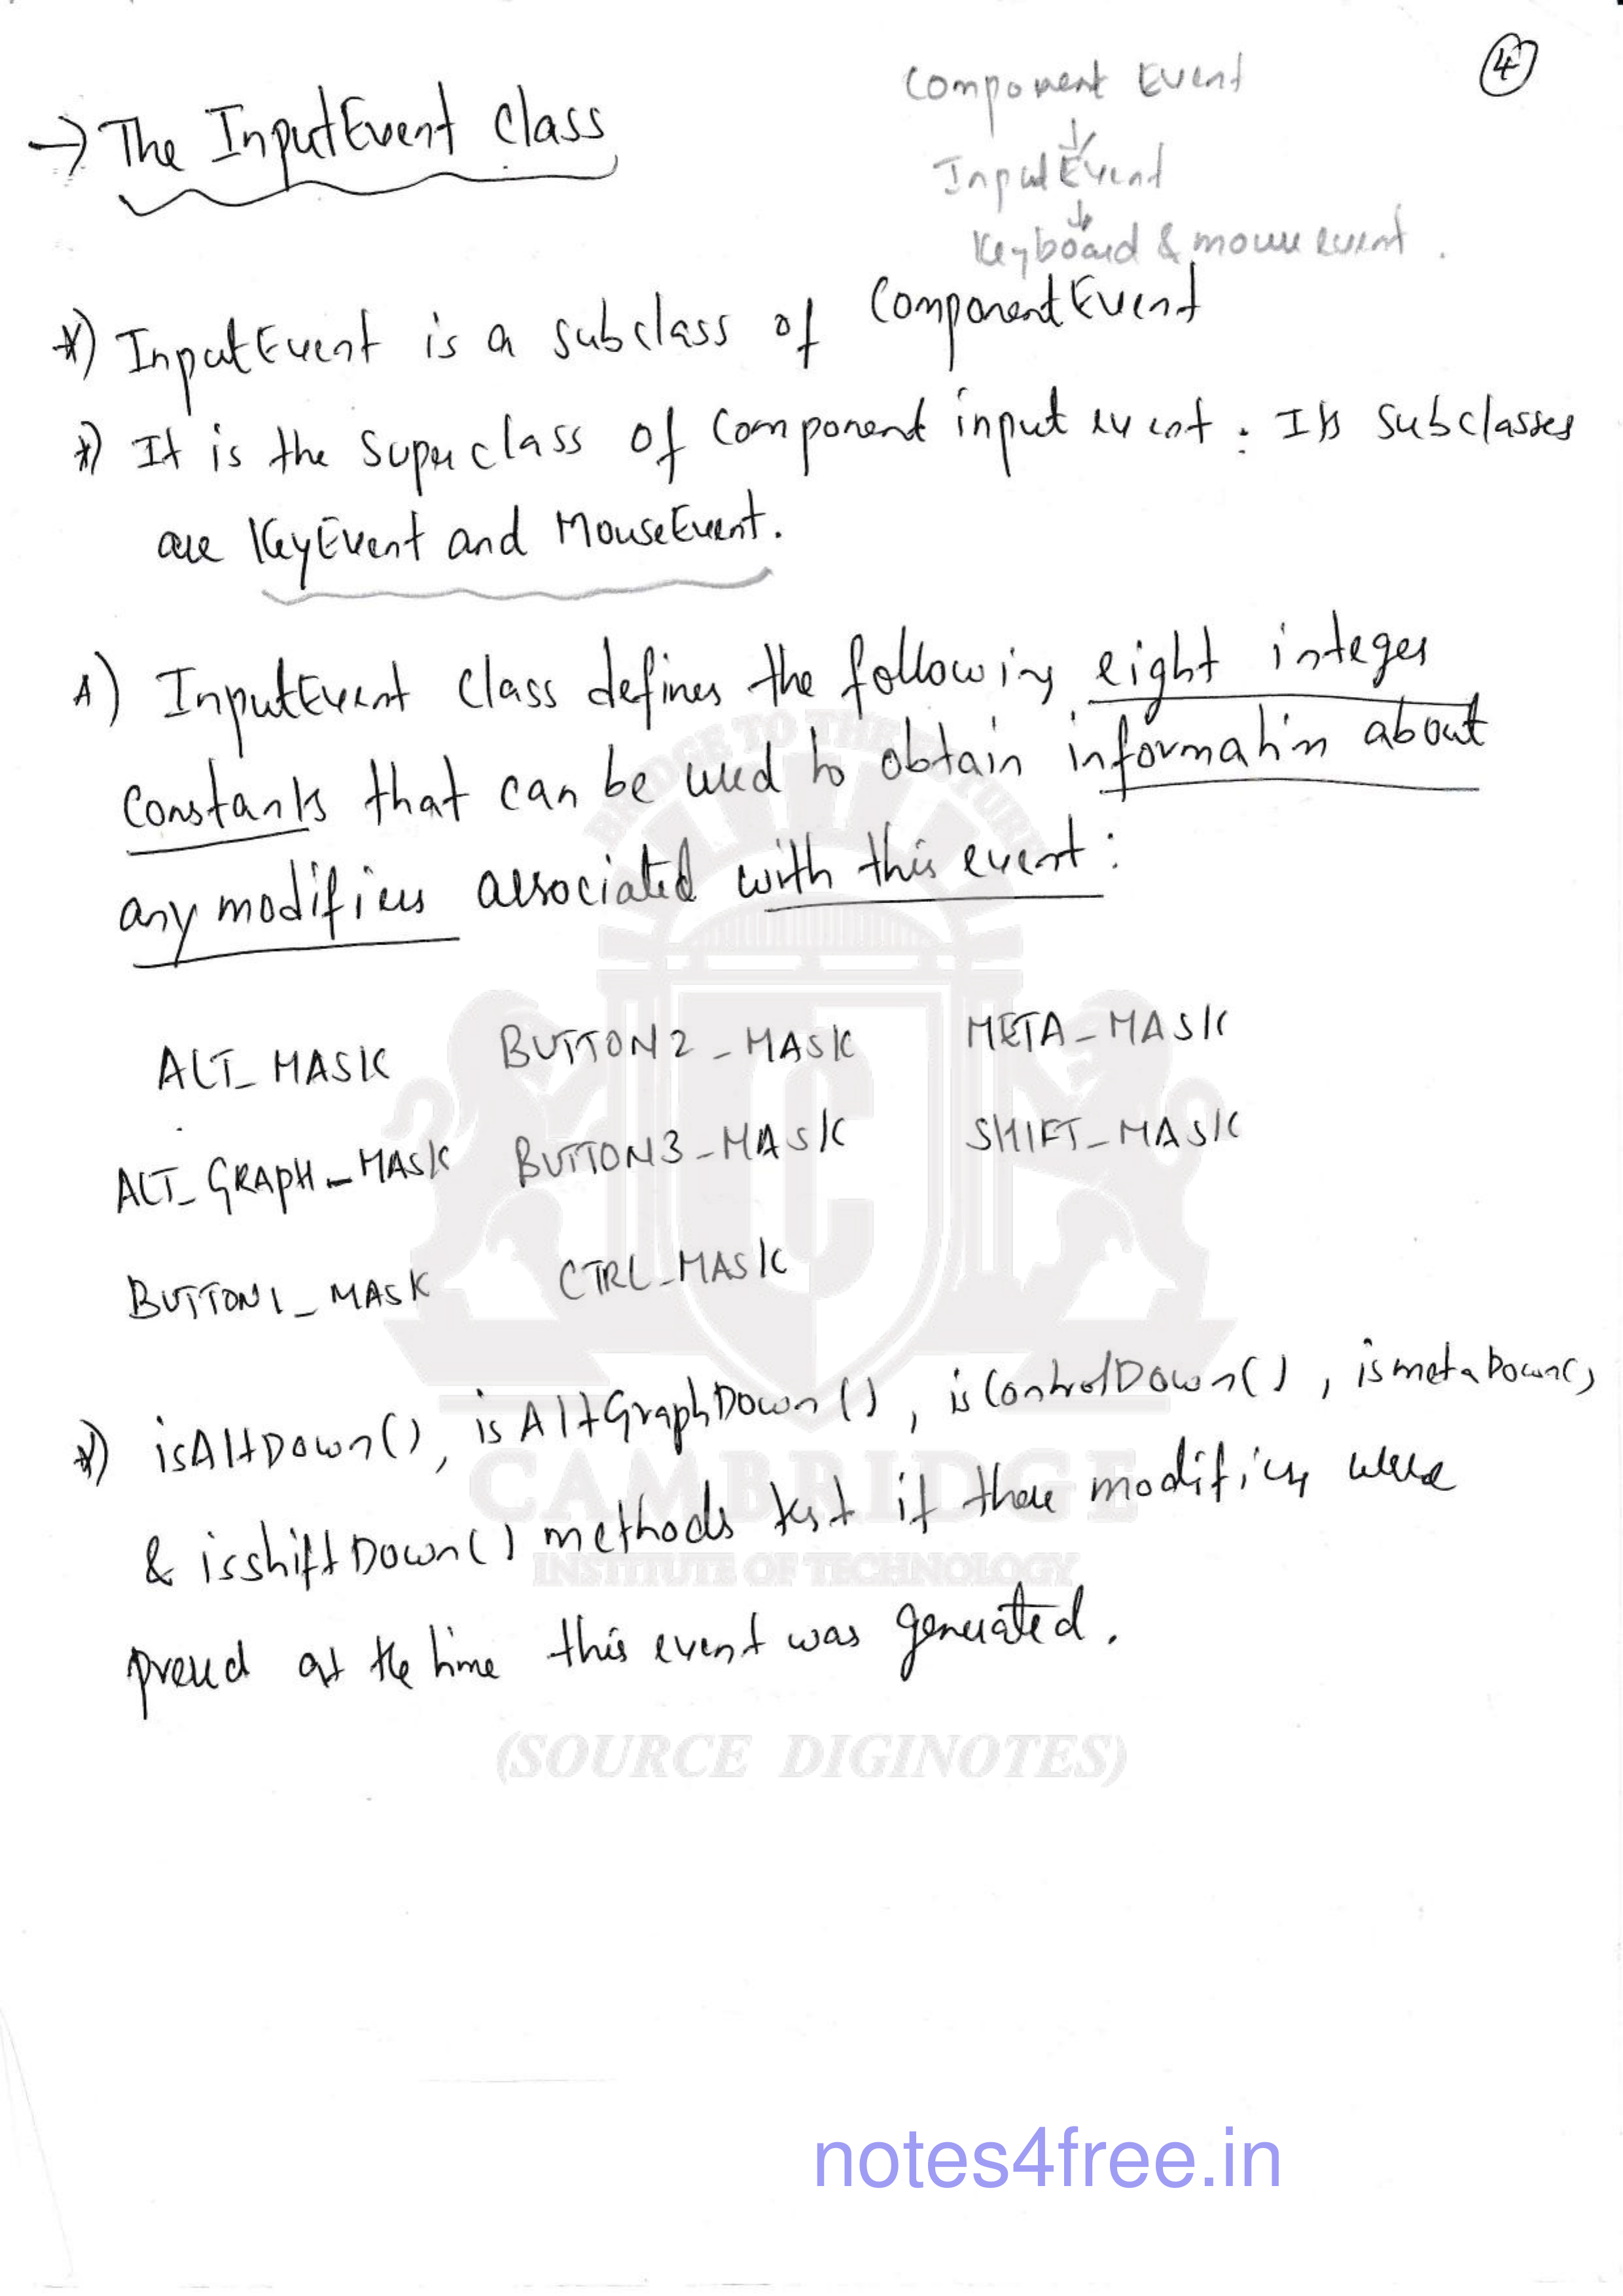 4
Component Event
↓
InputEvent
↓
Keyboard & mouse event.
→ The InputEvent Class
*) InputEvent is a subclass of ComponentEvent
*) It is the Superclass of Component input event. Its subclasses
are KeyEvent and MouseEvent.
*) InputEvent Class defines the following eight integer
Constants that can be used to obtain information about
any modifiers associated with this event:
ALT_MASK BUTTON2_MASK META_MASK
ALT_GRAPH_MASK BUTTON3_MASK SHIFT_MASK
BUTTON1_MASK CTRL_MASK
*) isAltDown(), isAltGraphDown(), isControlDown(), ismetaDown()
& isshiftDown() methods test if these modifiers were
pressed at the time this event was generated.
BRIDGE TO THE FUTURE
CAMBRIDGE
INSTITUTE OF TECHNOLOGY
(SOURCE DIGINOTES)
notes4free.in